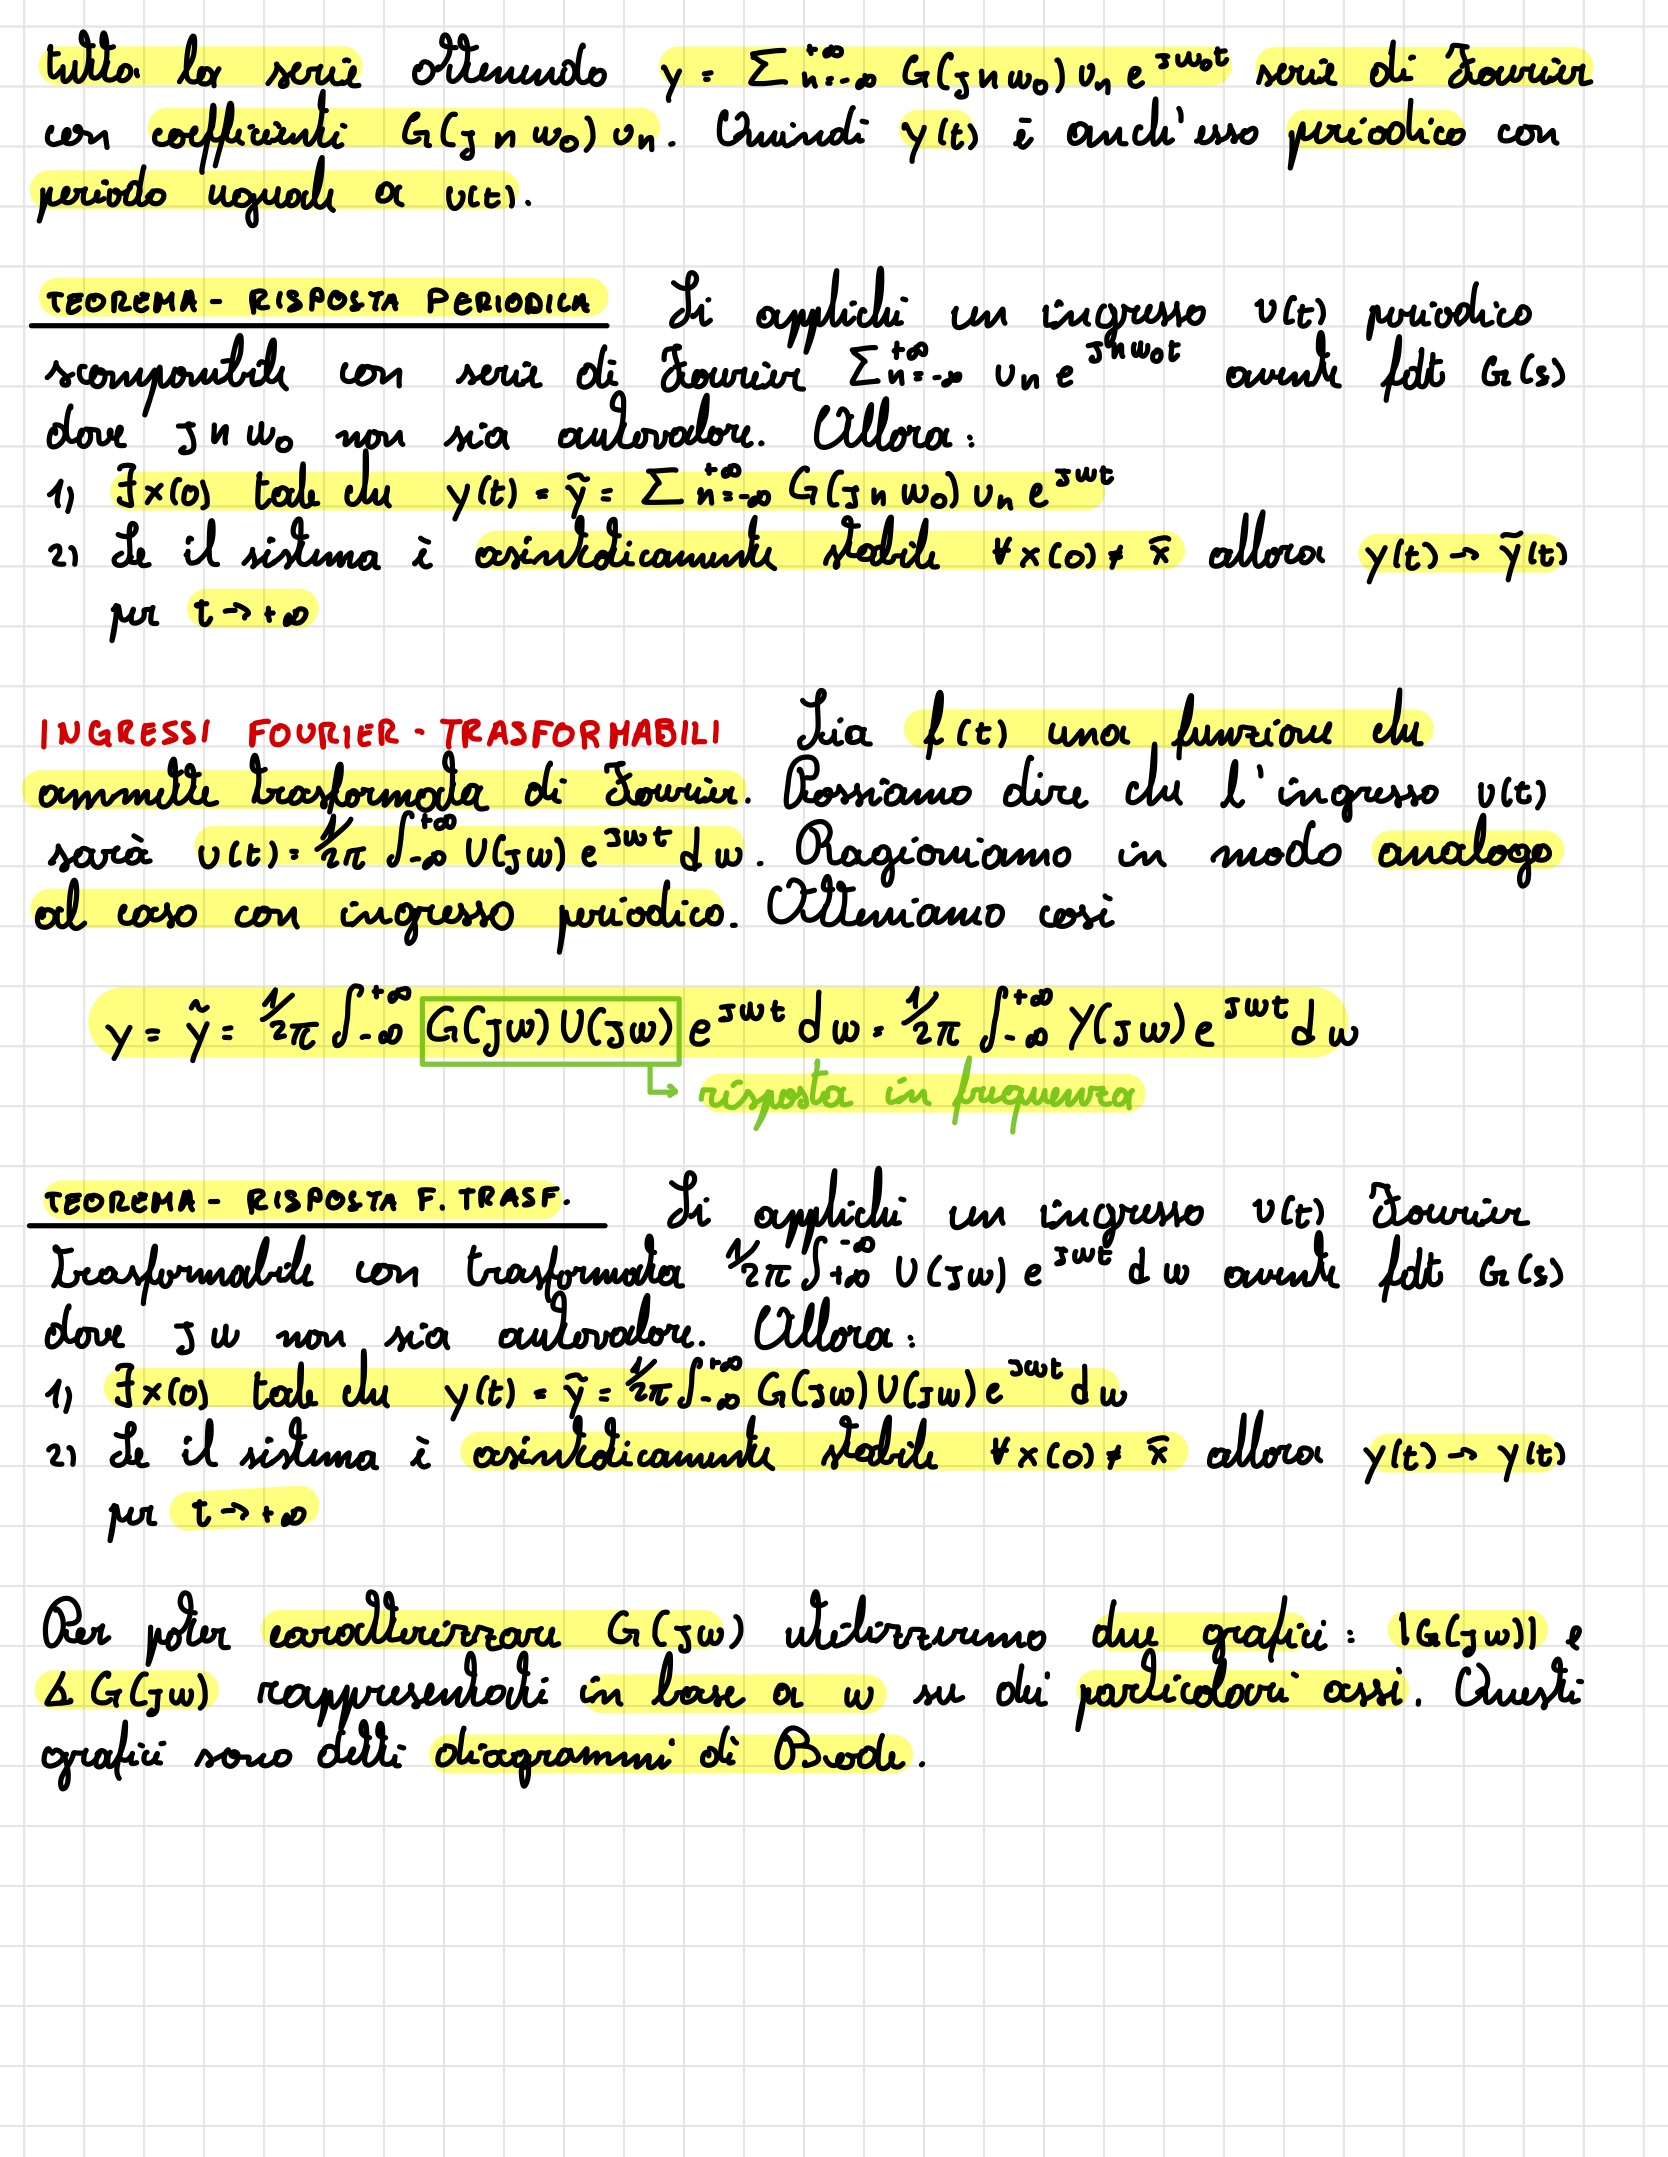 tutta la serie ottenendo y = Σ n=-∞ +∞ G(jnω₀) υₙ e^jω₀t serie di Fourier
con coefficienti G(jnω₀) υₙ. Quindi y(t) è anch'esso periodico con
periodo uguale a υ(t).
TEOREMA - RISPOSTA PERIODICA Si applichi un ingresso υ(t) periodico
scomponibile con serie di Fourier Σ n=-∞ +∞ υₙ e^jnω₀t avente fdt G(s)
dove jnω₀ non sia autovalore. Allora:
1) ∃x(0) tale che y(t) = ỹ = Σ n=-∞ +∞ G(jnω₀) υₙ e^jωt
2) Se il sistema è asintoticamente stabile ∀x(0) ≠ x̄ allora y(t) → ỹ(t)
per t → +∞
INGRESSI FOURIER - TRASFORMABILI Sia f(t) una funzione che
ammette trasformata di Fourier. Possiamo dire che l'ingresso υ(t)
sarà υ(t) = 1/2π ∫-∞ +∞ U(jω) e^jωt dω. Ragioniamo in modo analogo
al caso con ingresso periodico. Otteniamo così
y = ỹ = 1/2π ∫-∞ +∞ G(jω) U(jω) e^jωt dω = 1/2π ∫-∞ +∞ Y(jω) e^jωt dω
risposta in frequenza
TEOREMA - RISPOSTA F. TRASF. Si applichi un ingresso υ(t) Fourier
Trasformabile con trasformata 1/2π ∫+∞ -∞ U(jω) e^jωt dω avente fdt G(s)
dove jω non sia autovalore. Allora:
1) ∃x(0) tale che y(t) = ỹ = 1/2π ∫-∞ +∞ G(jω) U(jω) e^jωt dω
2) Se il sistema è asintoticamente stabile ∀x(0) ≠ x̄ allora y(t) → y(t)
per t → +∞
Per poter caratterizzare G(jω) utilizzeremo due grafici: |G(jω)| e
∡ G(jω) rappresentati in base a ω su dei particolari assi. Questi
grafici sono detti diagrammi di Bode.